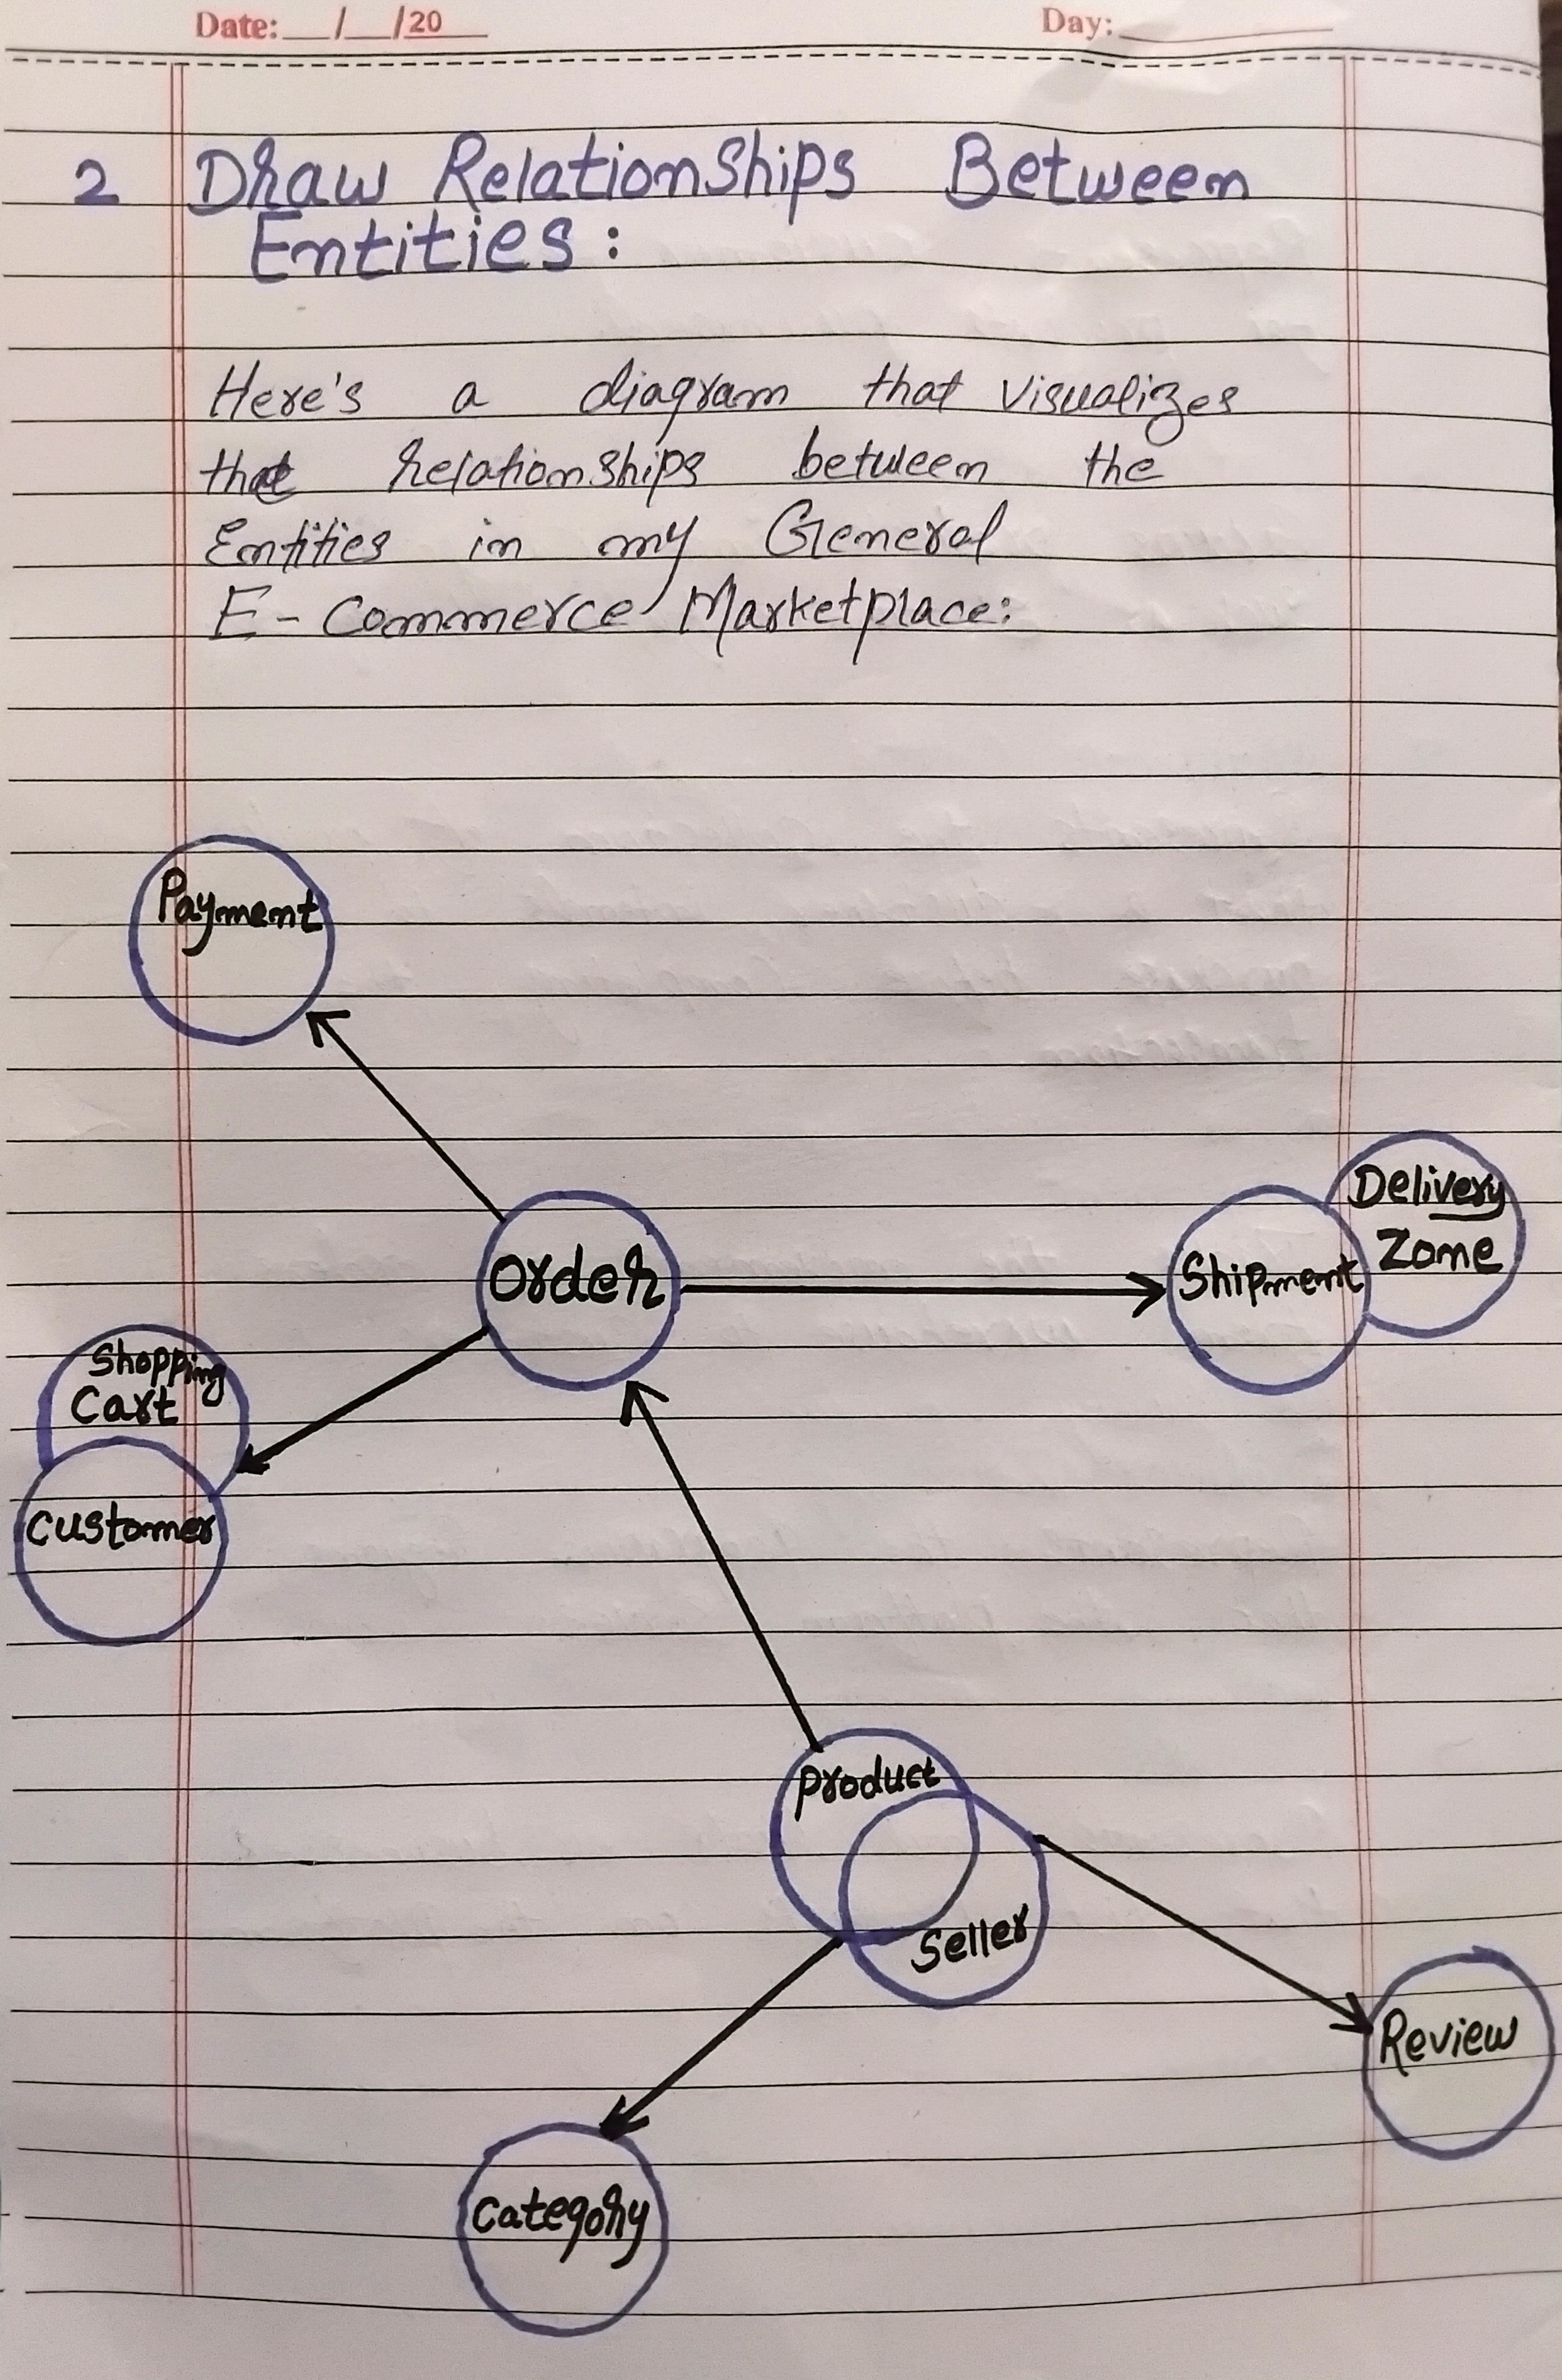 Date: __/__/20__ Day: ______
2 Draw Relationships Between
Entities:
Here's a diagram that visualizes
the relationships between the
Entities in my General
E-Commerce Marketplace:
Payment
Delivery
Zone
Order
Shipment
Shopping
Cart
Customer
Product
Seller
Review
Category